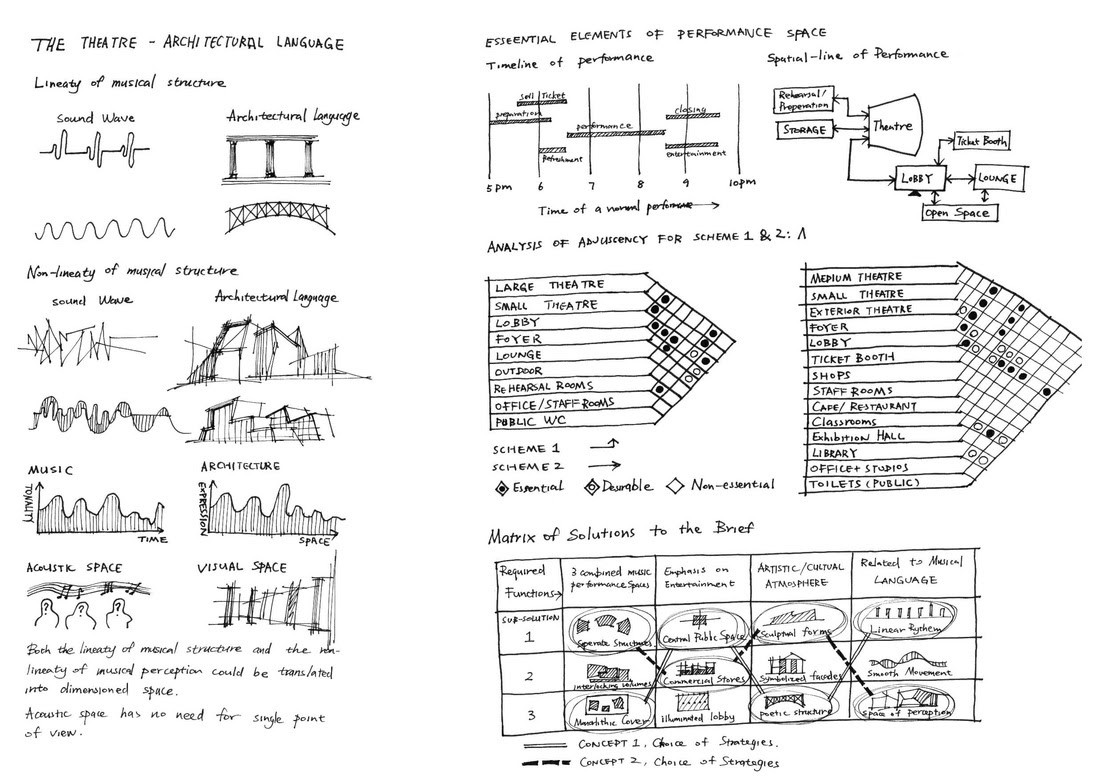 THE THEATRE - ARCHITECTURAL LANGUAGE
Lineaty of musical structure
Sound Wave
Architectural Language
Non-lineaty of musical structure
sound Wave
Architectural Language
MUSIC
TONALITY
TIME
ARCHITECTURE
EXPRESSION
SPACE
ACOUSTIC SPACE
VISUAL SPACE
Both the lineaty of musical structure and the non-
lineaty of musical perception could be translated
into dimensioned space.
Acoustic space has no need for single point
of view.
ESSEENTIAL ELEMENTS OF PERFORMANCE SPACE
Timeline of performance
sell Ticket
preparation
performance
Refreshment
closing
entertainment
5pm 6 7 8 9 10pm
Time of a normal performance
Spatial-line of Performance
Rehearsal/
Preperation
STORAGE
Theatre
Ticket Booth
LOBBY
LOUNGE
Open Space
ANALYSIS OF ADJUSCENCY FOR SCHEME 1 & 2:
LARGE THEATRE
SMALL THEATRE
LOBBY
FOYER
LOUNGE
OUTDOOR
REHEARSAL ROOMS
OFFICE/STAFF ROOMS
PUBLIC WC
SCHEME 1
SCHEME 2
Essential
Desirable
Non-essential
MEDIUM THEATRE
SMALL THEATRE
EXTERIOR THEATRE
FOYER
LOBBY
TICKET BOOTH
SHOPS
STAFF ROOMS
CAFE/RESTAURANT
Classrooms
Exhibition HALL
LIBRARY
OFFICE+ STUDIOS
TOILETS (PUBLIC)
Matrix of Solutions to the Brief
Required
Functions
3 combined music
performance Spaces
Emphasis on
Entertainment
ARTISTIC/CULTUAL
ATMOSPHERE
Related to Musical
LANGUAGE
SUB-SOLUTION
1
Seperate Structures
Central Public Space
Sculptual forms
Linear Rythem
2
interlocking volumes
Commercial Stores
Symbolized facades
Smooth Movement
3
Monolithic Cover
illuminated lobby
Poetic structure
Space of perception
CONCEPT 1, Choice of Strategies.
CONCEPT 2, Choice of Strategies